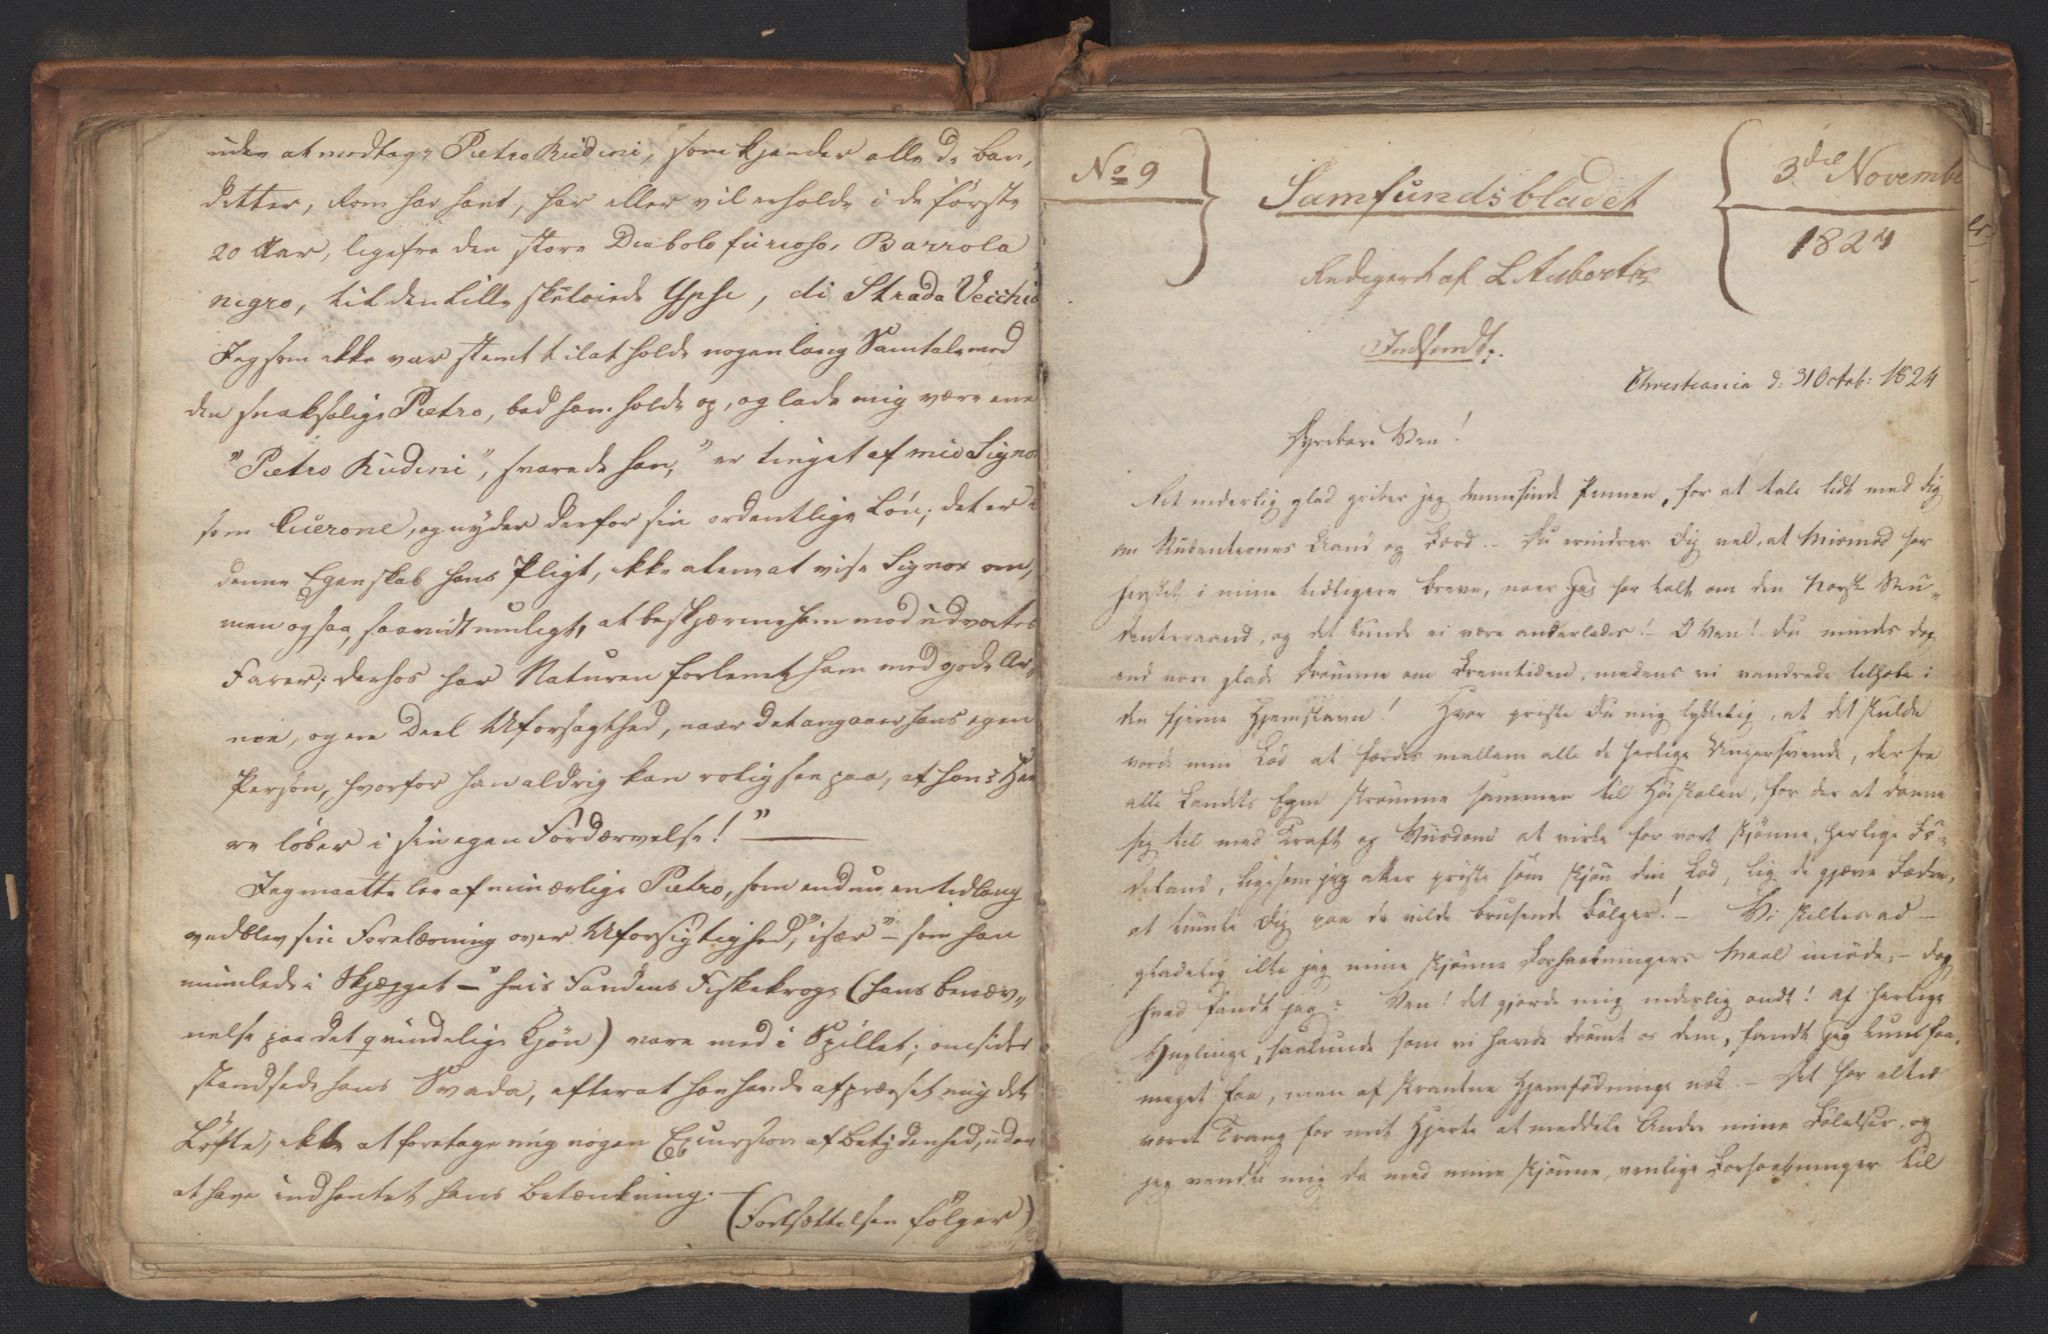 uden at modtage Pietro Rudini, som kjender alle de ban,
detter, Rom har havt, har eller vil erholde i de første
20 Aar, ligefra den store Diabolo furioso, Barrola
negro, til den lille skeløiede Ypsi, di Strada Vecchia
Jeg som ikke var stemt til at holde nogen lang Samtale med
den snaksalige Pietro, bad ham holde op, og lade mig være ene
"Pietro Rudini", svarede han, "er tinget af mio Signor
som Cicerone, og nyder derfor sin ordentlige Løn; det er i
denne Egenskab hans Pligt, ikke alene at vise Signor om,
men ogsaa, saavidt muligt, at beskjærme ham mod udvortes
Farer; derhos har Naturen forlenet ham med gode Ar,
me, og en Deel Uforsagthed, naar det angaaer hans egen
Person, hvorfor han aldrig kan rolig see paa, at hans Her
re løber i sin egen Fordærvelse!" —
Jeg maatte lee af min ærlige Pietro, som endnu en tidlang
vedblev sin Forelæsning over Uforsigtighed, "især" – som han
mumlede i Skjægget – "hvis Fandens Fiskekroge (hans benæv„
nelse paa det qvindelige Kjøn) vare med i Spillet; omsider
standsede hans Svada, efterat han havde afpræsset mig det
Løfte, ikke at foretage mig nogen Excursion af betydenhed, uden
at have indhentet hans betænkning. –
(Fortsættelsen følger)
No 9
Samfundsbladet
3die Novembe
1824
Redigeret af L Aubert
Indsendt.
Christiania d: 31 Octob: 1824
Dyrebare Ven!
Ret inderlig glad griber jeg dennesinde Pennen, for at tale lidt med dig
om Studenternes Aand og Færd. – Du erindrer dig vel, at Mismod har
hersket i mine tidligere breve, naar jeg har talt om den Norske Stu„
denteraand, og det kunde ei være anderledes! – O Ven! du mindes dog
end vore glade Drømme om Fremtiden, medens vi vandrede tilhobe i
den fjerne Hjemstavn! Hvor priste du mig lykkelig, at det skulde
vorde min Lod at færdes mellem alle de herlige Ungersvende, der fra
alle Landets Egne strømme sammen til Høiskolen, for der at danne
sig til med Kraft og Viisdom at virke for vort skjønne, herlige Fø„
deland, ligesom jeg atter priste som skjøn din Lod, lig de gjæve Fædre,
at tumle dig paa de vilde brusende Bølger! – Vi skiltes ad –
gladelig ilte jeg mine skjønne Forhaabningers Maal imøde; – dog,
hvad fandt jeg? Ven! det gjorde mig inderlig ondt! Af herlige
Ynglinge, saalunde som vi havde drømt os dem, fandt jeg kuns saa,
meget faa, men af skrantne Hjemfødninge nok. – Det har altid
været Trang for mit Hjerte at meddele Andre mine Følelser, og
jeg vendte mig da med mine skjønne, venlige Forhaabninger til